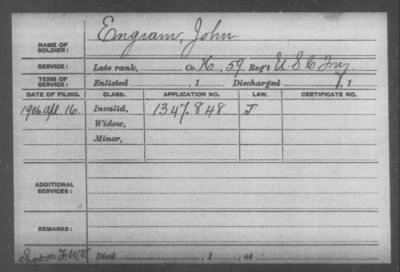 NAME OF SOLDIER: Engram, John
SERVICE: Late rank, Co. K, 59 Reg't U.S.C. Inf
TERM OF SERVICE: Enlisted , 1 Discharged , 1
DATE OF FILING. CLASS. APPLICATION NO. LAW. CERTIFICATE NO.
1906 Apl. 16. Invalid, 1347.848 J
Widow,
Minor,
ADDITIONAL SERVICES:
REMARKS:
Died , 1 , at